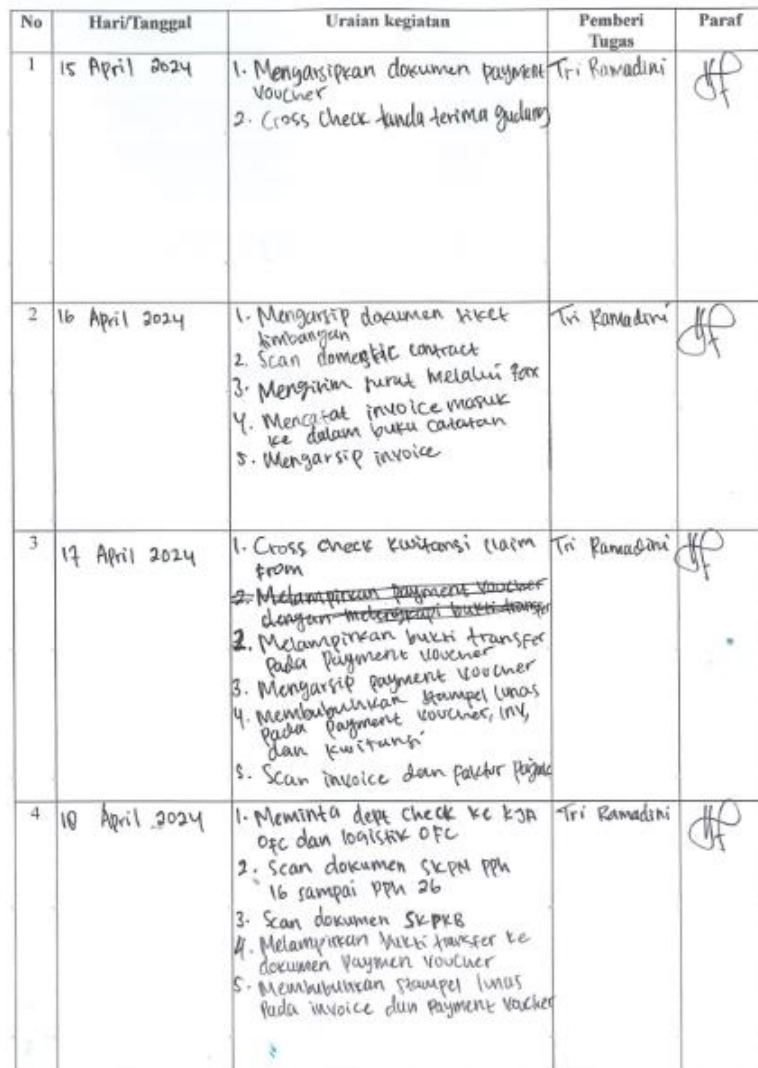 No Hari/Tanggal Uraian kegiatan Pemberi Tugas Paraf
1 15 April 2024 Tri Ramadini
1. Mengarsipkan dokumen payment
voucher
2. Cross check tanda terima gudang
2 16 April 2024 Tri Ramadini
1. Mengarsip dokumen tiket
timbangan
2. Scan domestic contract
3. Mengirim surat melalui fax
4. Mencatat invoice masuk
ke dalam buku catatan
5. Mengarsip invoice
3 17 April 2024 Tri Ramadini
1. Cross check kwitansi claim
from
2. Melampirkan payment voucher
dengan melengkapi bukti transfer
2. Melampirkan bukti transfer
pada payment voucher
3. Mengarsip payment voucher
4. Membubuhkan stampel lunas
pada payment voucher, inv,
dan kwitansi
5. Scan invoice dan faktur pajak
4 18 April 2024 Tri Ramadini
1. Meminta dept check ke KJA
OFC dan logistik OFC
2. Scan dokumen SKPN PPh
16 sampai PPh 26
3. Scan dokumen SKPKB
4. Melampirkan bukti transfer ke
dokumen paymen voucher
5. Membubuhkan stampel lunas
pada invoice dan payment voucher